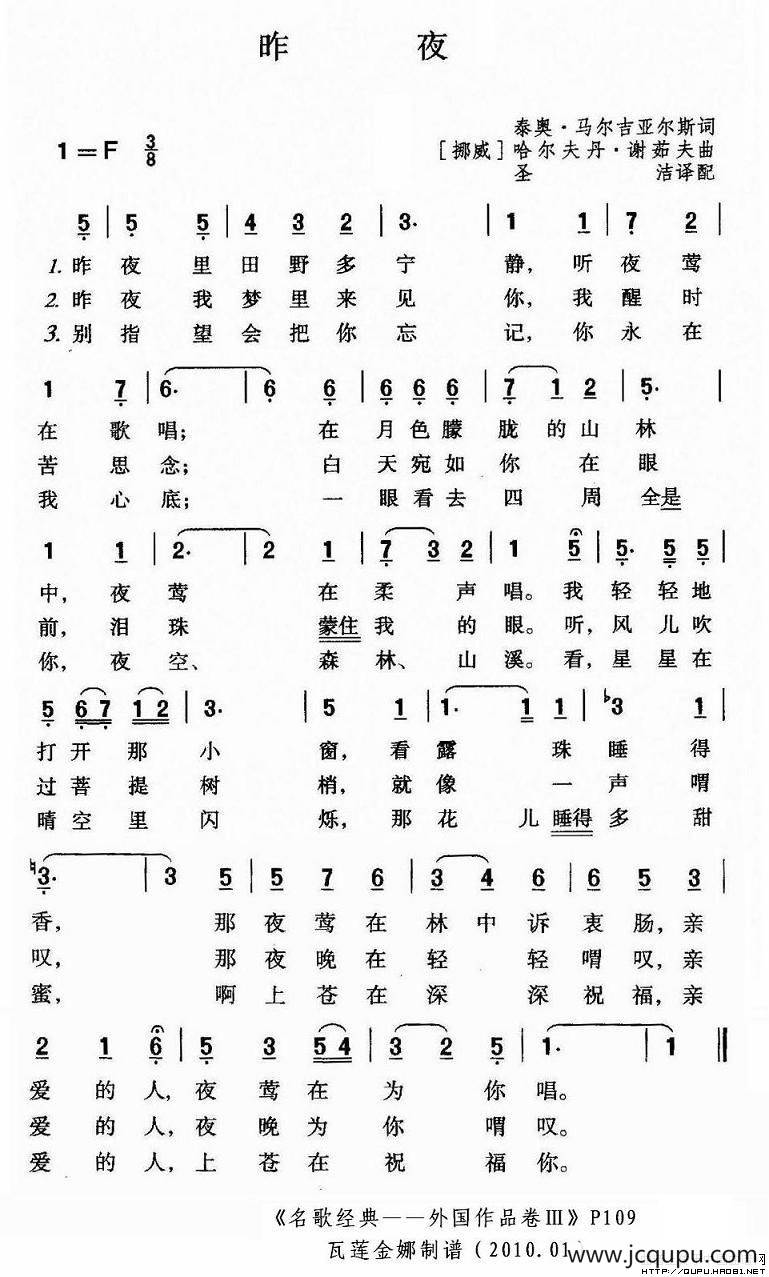 昨 夜
泰奥·马尔吉亚尔斯词
1=F 3/8 [挪威]哈尔夫丹·谢茹夫曲
圣 洁译配
5 5 | 5 4 3 2 | 3· | 1 1 | 7 2
1. 昨夜里田野多宁静,听夜莺
2. 昨夜我梦里来见你,我醒时
3. 别指望会把你忘记,你永在
1 7 | 6· | 6 6 6 6 | 7 1 2 | 5·
在歌唱; 在月色朦胧的山林
苦思念; 白天宛如你在眼
我心底; 一眼看去四周全是
1 1 | 2· | 2 1 | 7 3 2 | 1 5 | 5· 5 5
中,夜莺 在柔声唱。我轻轻地
前,泪珠 蒙住我的眼。听,风儿吹
你,夜空、 森林、山溪。看,星星在
5 6 7 1 2 | 3· | 5 1 | 1· 1 1 | ♭3 1
打开那小窗,看露珠睡得
过菩提树梢,就像一声喟
晴空里闪烁,那花儿睡得多甜
♮3· | 3 5 | 5 7 6 | 3 4 6 | 6 5 3
香, 那夜莺在林中诉衷肠,亲
叹, 那夜晚在轻轻喟叹,亲
蜜, 啊上苍在深深祝福,亲
2 1 6 | 5 3 5 4 | 3 2 5 | 1· | 1
爱的人,夜莺在为你唱。
爱的人,夜晚为你喟叹。
爱的人,上苍在祝福你。
《名歌经典——外国作品卷Ⅲ》P109
瓦莲金娜制谱(2010.01
www.jcqupu.com
HTTP://QUPU.HAO81.NET